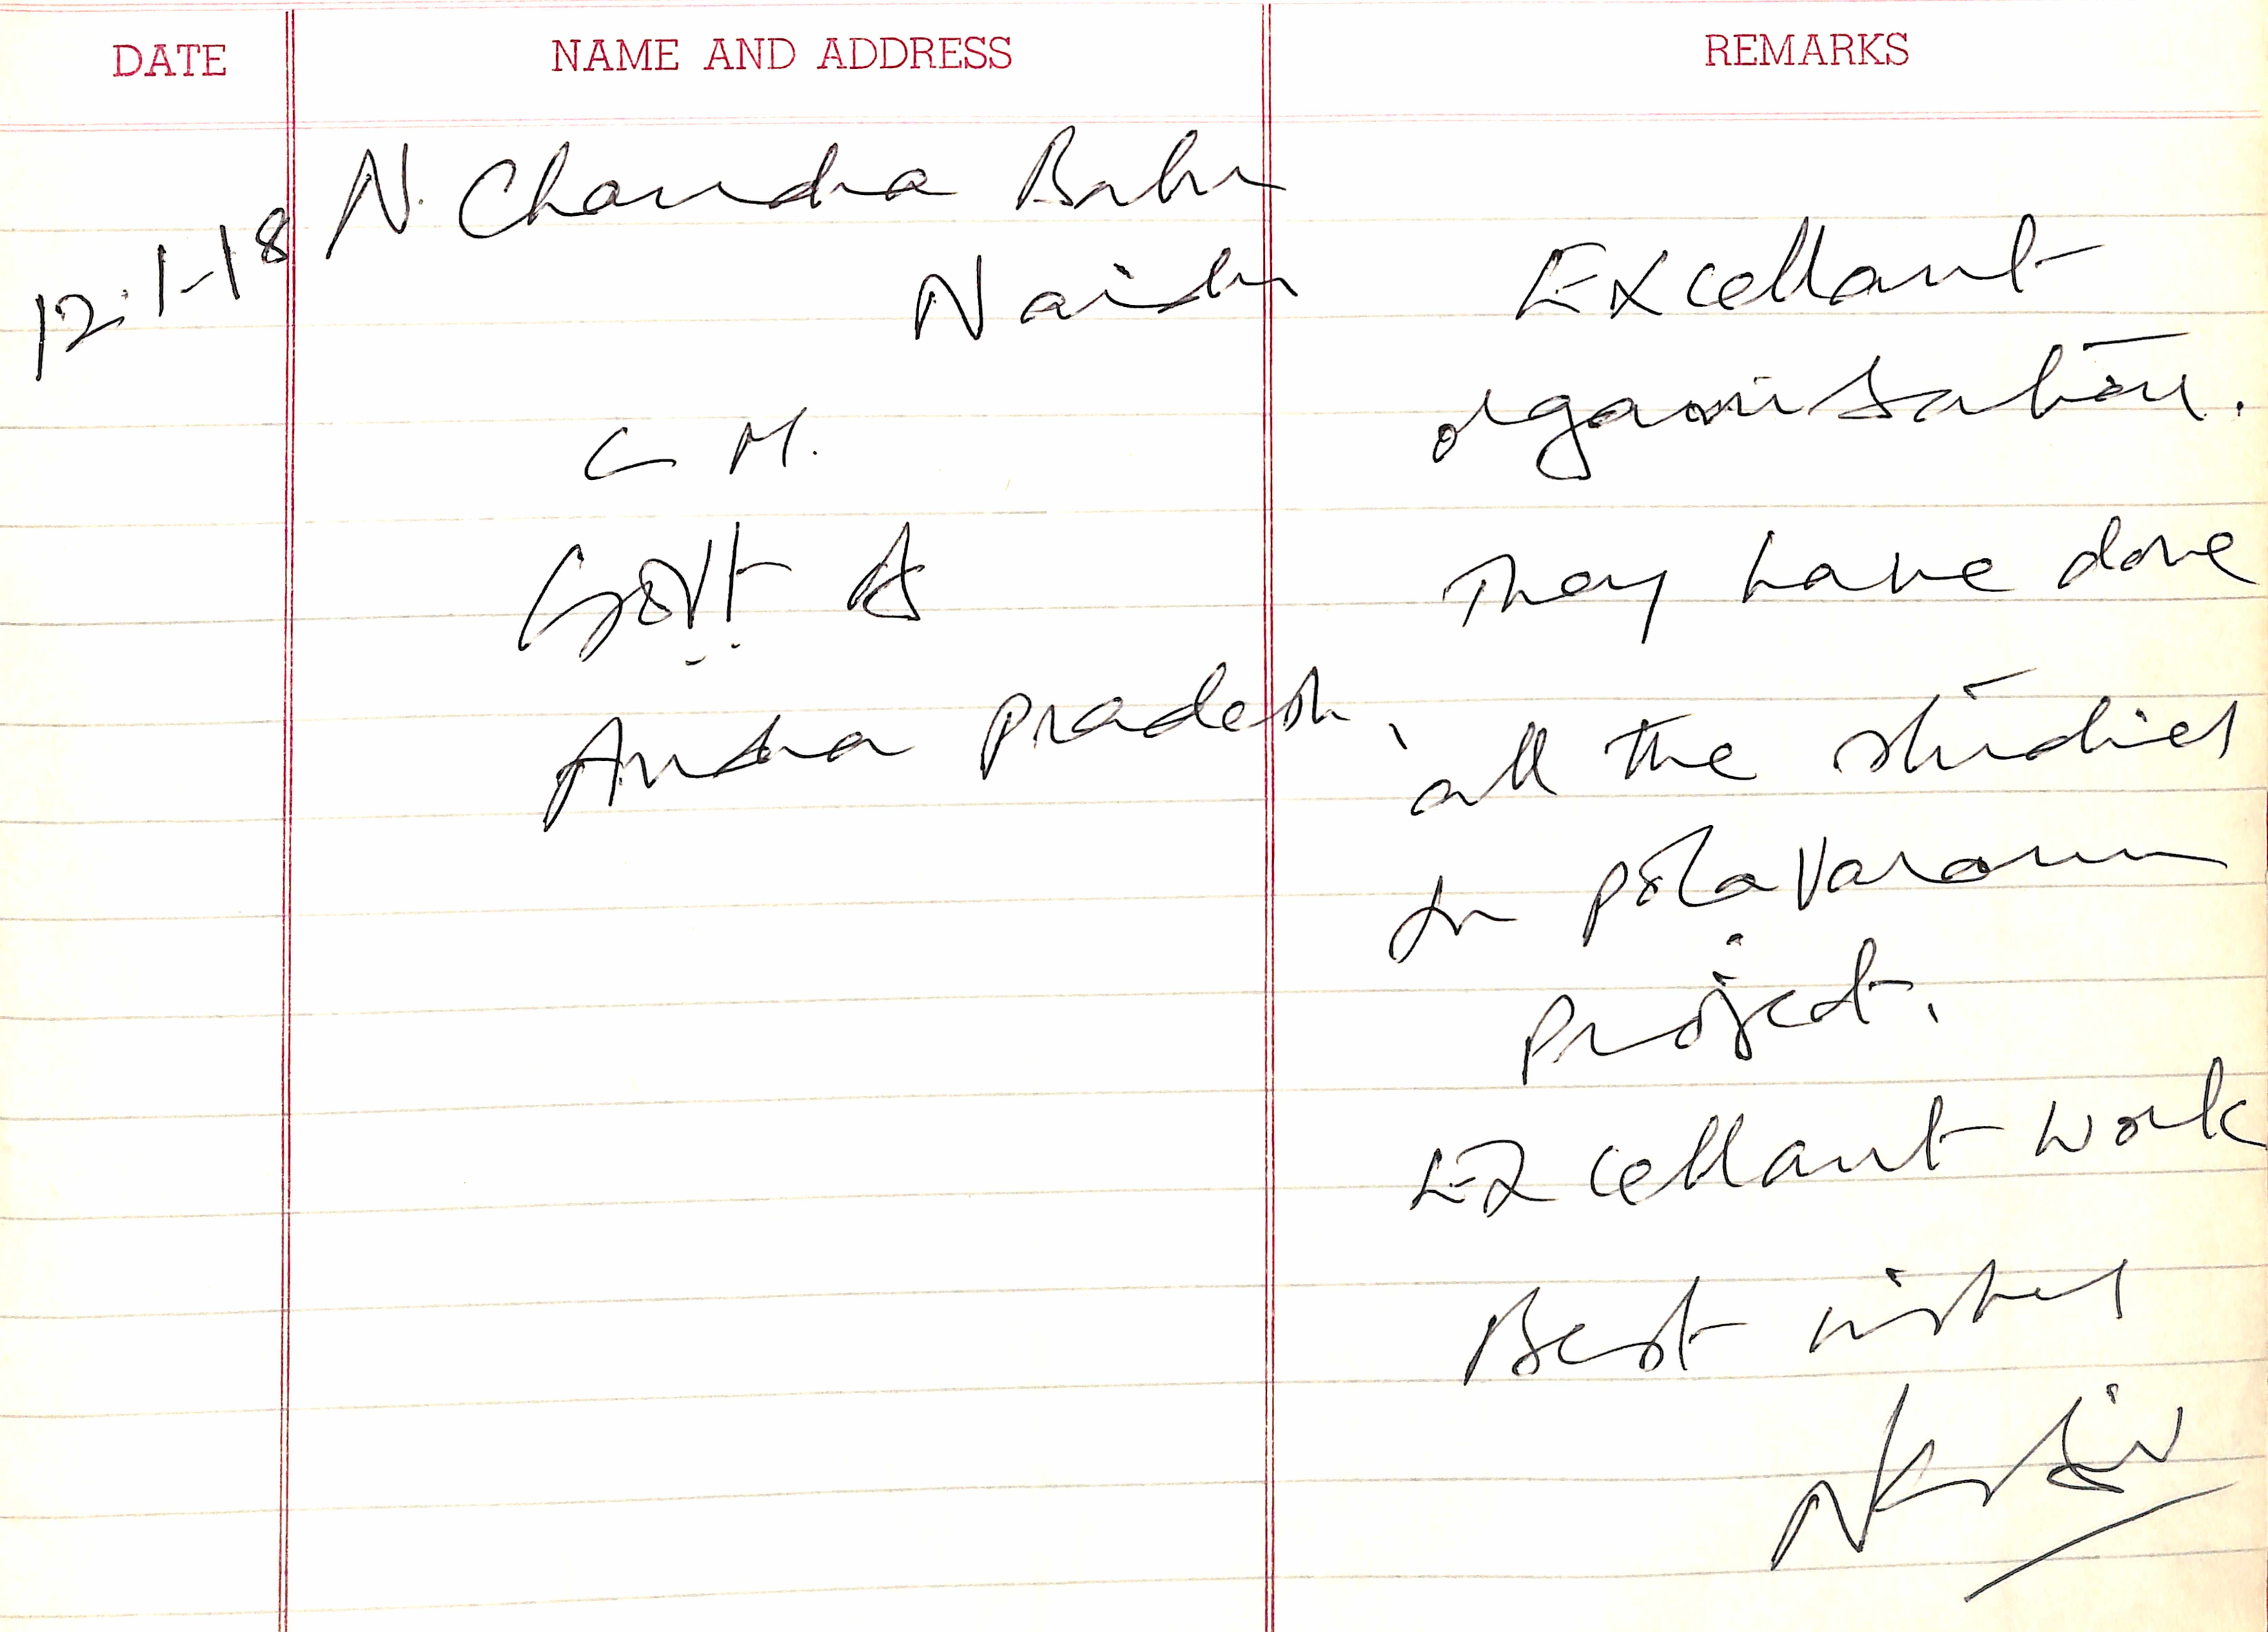 DATE
NAME AND ADDRESS
REMARKS
12.1-18
N. Chandra Babu
Naidu
C M.
Govt of
Andhra Pradesh.
Excellant
organisation.
They have done
all the studies
for polavaram
project.
Excellant work
Best wishes